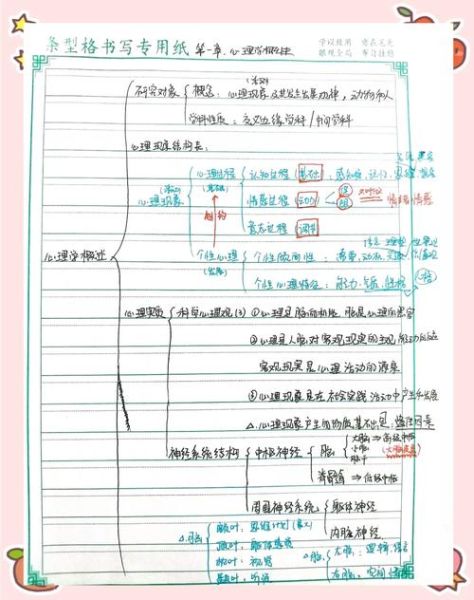 条型格书写专用纸 第一章.心理学概述
学以致用
研究对象 概念:心理现象及其发生发展规律,动物和人
学科性质:交叉边缘学科/中间学科
心理现象结构表:
心理过程 认知过程(基础):感知觉,记忆,
心理现象 情感过程(动力)
意志过程(调节)
个性心理 个性倾向性:需要,动机,
个性心理特征:能力,气质,性格
心理学概述
心理实质 科学心理观(3) ①心理是脑的机能 脑是心理的器官
②心理是人脑对客观现实的主观能动的反应
客观现实是心理活动的源泉
③心理现象是在社会实践活动中产生和发展
△.心理现象产生的物质基础
神经系统结构 中枢神经 脑 大脑⇒高级中枢
小脑 (大脑皮层)
脑干
脊髓⇒低级中枢
周围神经系统 躯体神经
内脏神经.
△脑 额叶:思维计划
顶叶:躯体感觉
枕叶:视觉 △脑 左脑:逻辑,语言
颞叶:听觉 右脑:空间